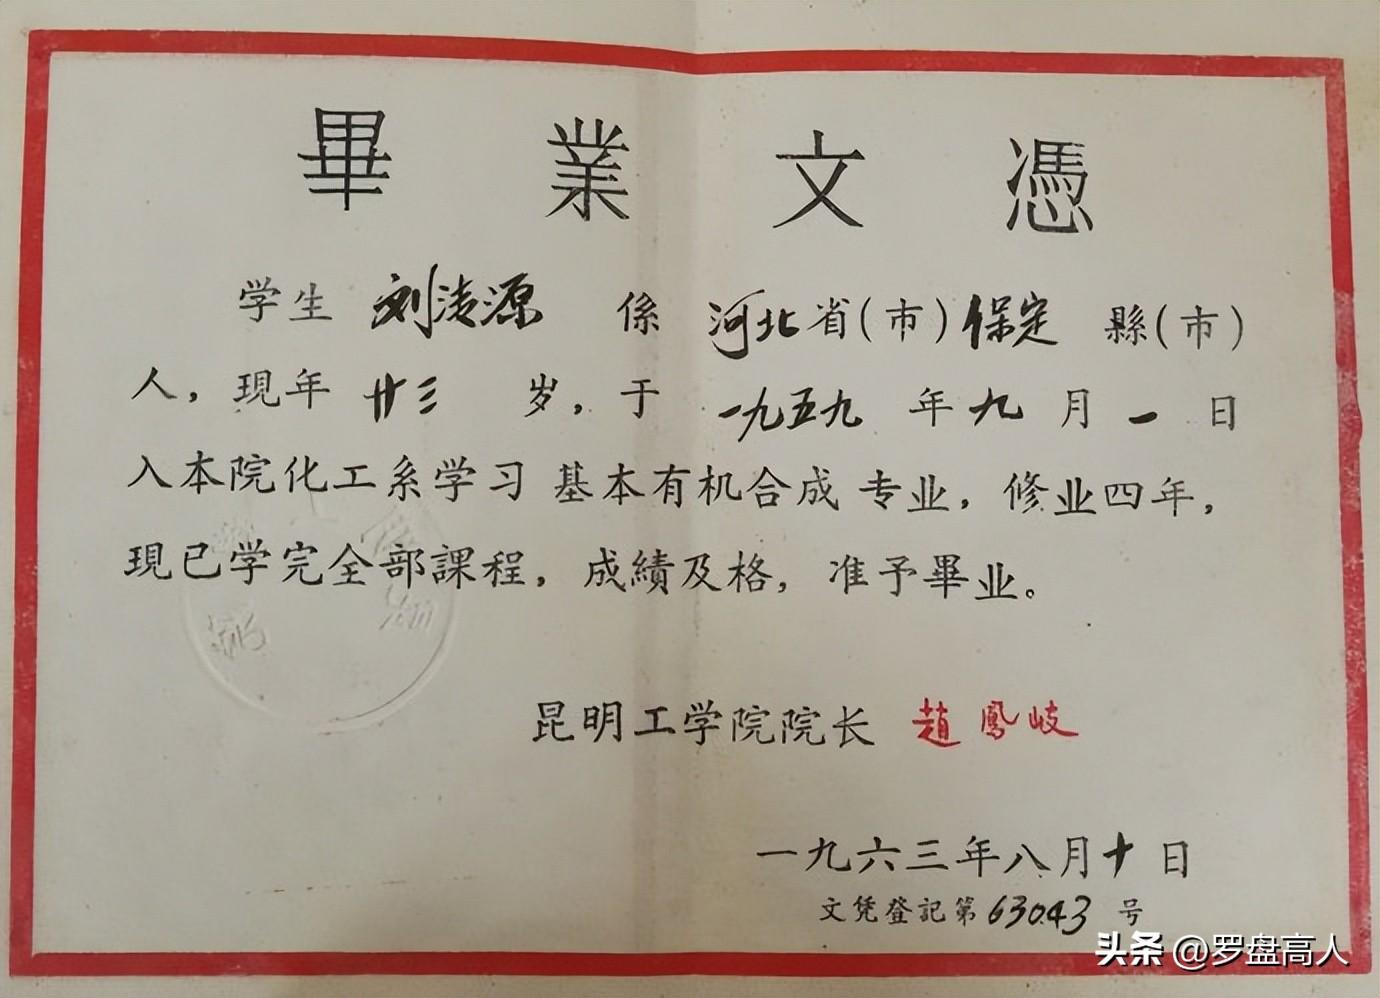 畢業文憑
学生 刘涛源 係 河北省(市)保定 縣(市)
人，現年 廿三 岁，于 一九五九 年 九 月 一 日
入本院化工系学习 基本有机合成 专业，修业四年，
現已学完全部課程，成績及格，准予畢业。
昆明工学院院长 趙鳳岐
一九六三年八月十日
文凭登記第 63043 号
头条 @罗盘高人